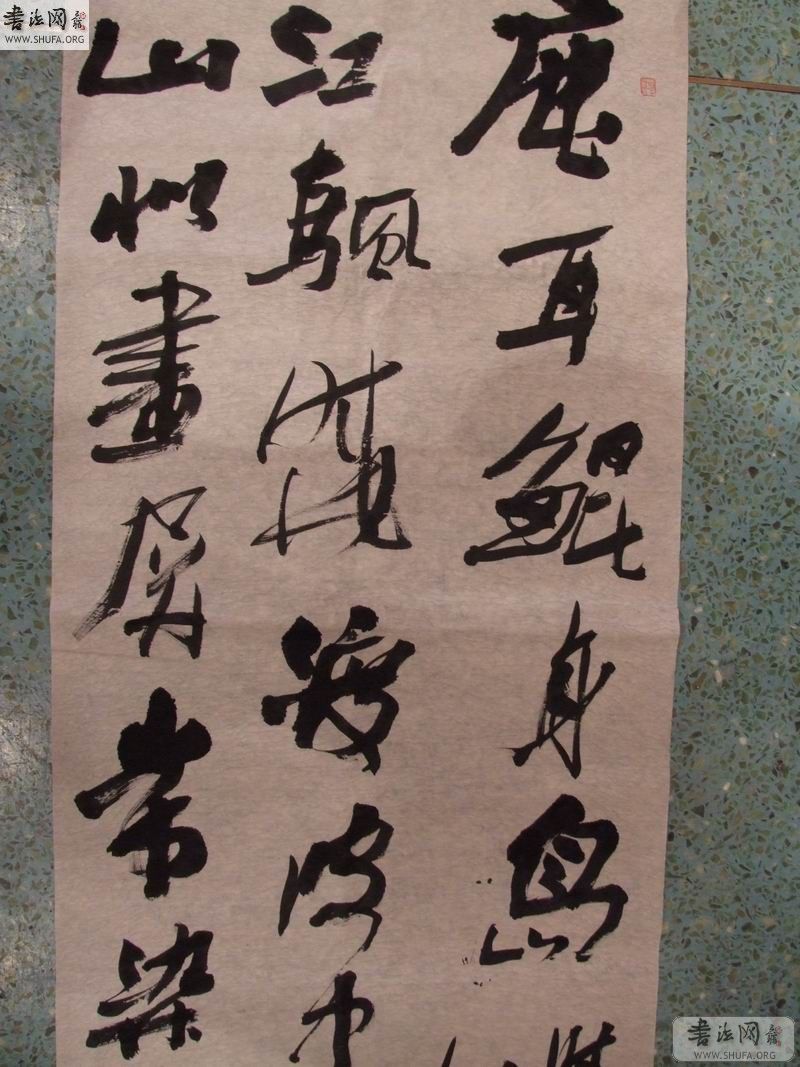 书法网
WWW.SHUFA.ORG
鹿耳鯤身島
江颿波中
山似畫屏常染
书法网
WWW.SHUFA.ORG